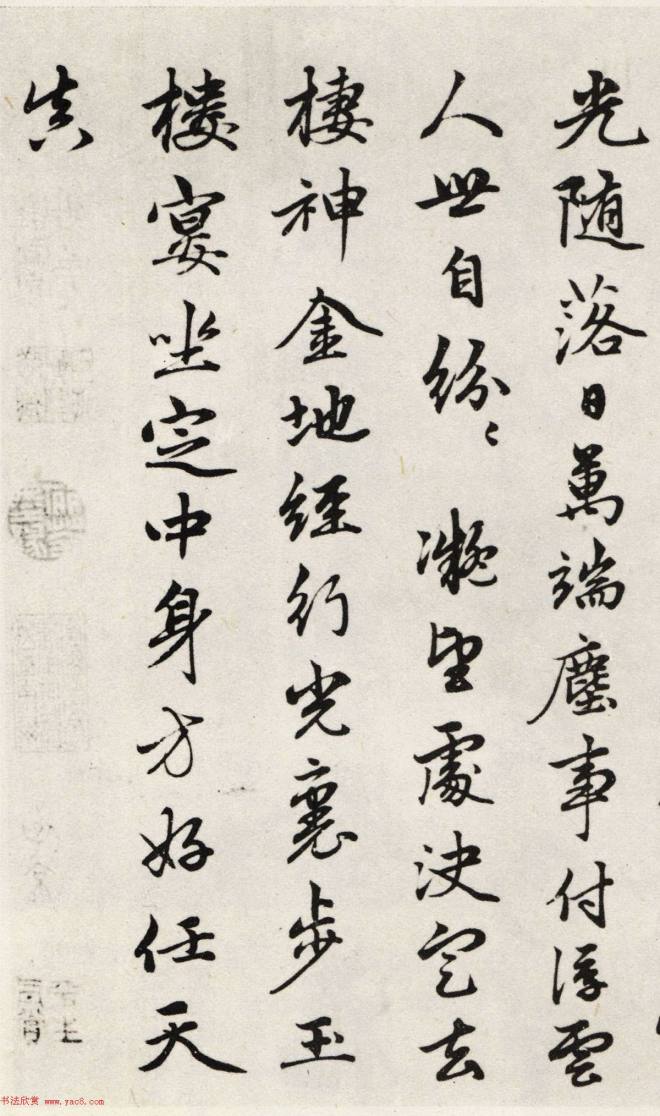 光随落日萬端塵事付浮雲
人世自紛〻 凝望處决定去
棲神金地經行光裏步玉
樓宴坐定中身方好任天
真
书法欣赏 www.yac8.com